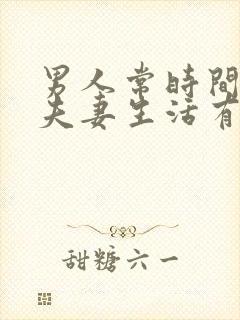 男人常時間
夫妻生活有
甜糖六一